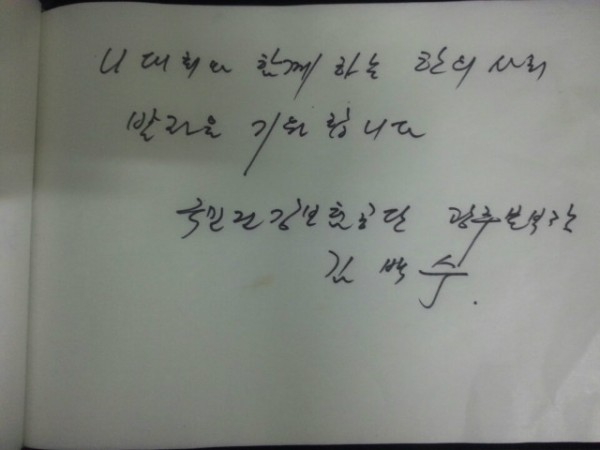 U대회와 함께 하는 한의사회
발전을 기원 합니다
국민건강보험공단 광주본부장
김 백 수.